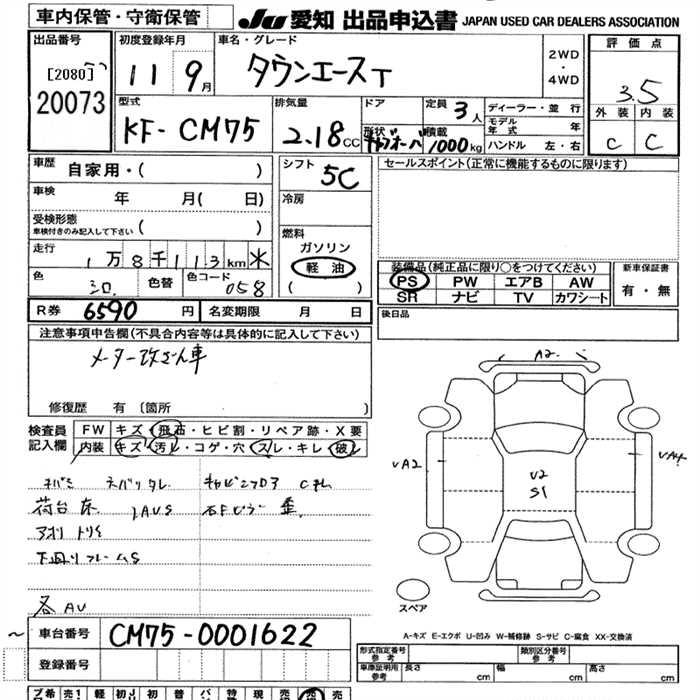 車内保管・守衛保管
JU 愛知 出品申込書 JAPAN USED CAR DEALERS ASSOCIATION
出品番号
[2080]
20073
初度登録年月
11 9月
車名・グレード
タウンエースT
2WD
・
4WD
評価点
3.5
外装 内装
C C
型式
KF-CM75
排気量
2.18CC
ドア
形状
定員 3人
積載 1000kg
ディーラー・並行
モデル年式 年
ハンドル 左・右
車歴 自家用・( )
車検 年 月( 日)
受検形態
車検付きのみ記入して下さい ( )
走行 1万8千113km
色 シロ 色替 色コード 058
シフト 5C
冷房
燃料
ガソリン
軽油
( )
セールスポイント(正常に機能するものに限ります)
装備品(純正品に限り○をつけてください)
PS PW エアB AW
SR ナビ TV カワシート
新車保証書
有・無
後日品
R券 6590円 名変期限 月 日
注意事項申告欄(不具合内容等は具体的に記入して下さい)
メーター改ざん車
修復歴 有〔箇所 〕
検査員記入欄
FW キズ・飛石・ヒビ割・リペア跡・X要
内装 キズ・汚レ・コゲ・穴 スレ・キレ・破レ
荷台床
下廻りフレームS
各AU
A2
VA2
V2
S1
VA4
スペア
A-キズ E-エクボ U-凹み W-補修跡 S-サビ C-腐食 XX-交換済
～ 車台番号 CM75-0001622
登録番号
形式指定番号 参考
類別区分番号 参考
車庫証明用 参考 長さ cm 幅 cm 高さ cm